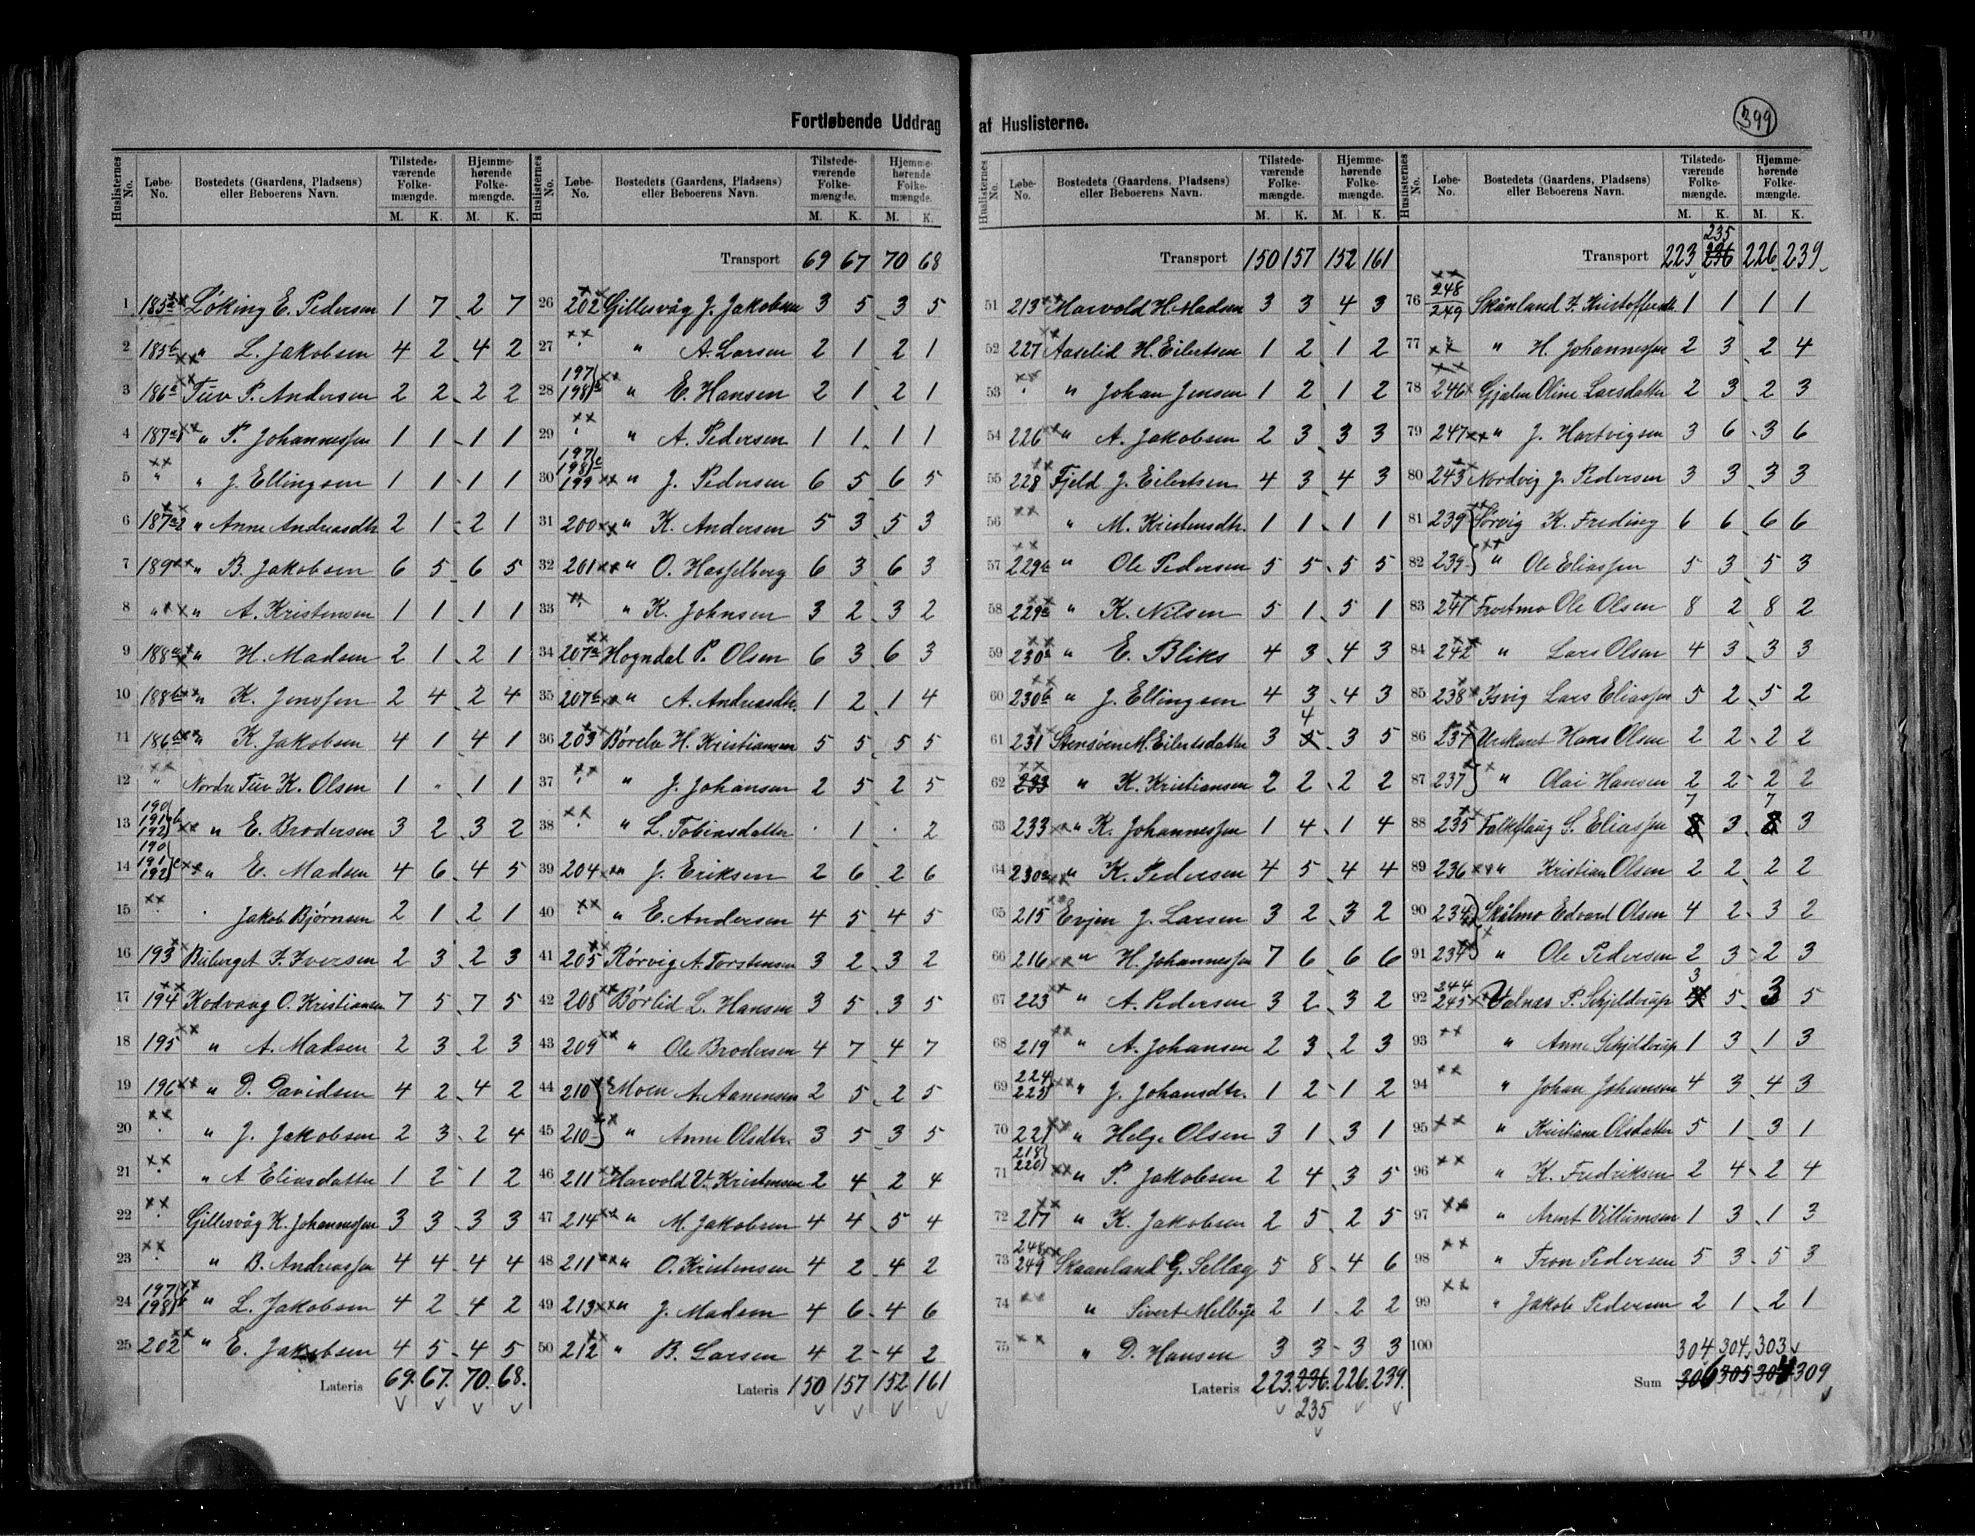 Fortløbende Uddrag af Huslisterne.
399
Huslisternes No. Løbe-No. Bostedets (Gaardens, Pladsens) eller Beboerens Navn. Tilstedeværende Folkemængde. M. K. Hjemmehørende Folkemængde. M. K.
1 185a Løking E. Pedersen 1 7 2 7
2 185b " L. Jakobsen 4 2 4 2
3 186a Tuv P. Andersen 2 2 2 2
4 187a1 " P. Johannessen 1 1 1 1
5 " " J. Ellingsen 1 1 1 1
6 187a2 " Anne Andreasdtr. 2 1 2 1
7 189 " B. Jakobsen 6 5 6 5
8 " " A. Kristensen 1 1 1 1
9 188a " H. Madsen 2 1 2 1
10 188b " K. Jenssen 2 4 2 4
11 186b " K. Jakobsen 4 1 4 1
12 " Nordre Tuv K. Olsen 1 " 1 1
13 190 191 192 b " E. Brodersen 3 2 3 2
14 190 191 192 c " E. Madsen 4 6 4 5
15 " Jakob Bjørnsen 2 1 2 1
16 193 Buberget F. Iversen 2 3 2 3
17 194 Kodvaag O. Kristiansen 7 5 7 5
18 195 " A. Madsen 2 3 2 3
19 196 " D. Davidsen 4 2 4 2
20 " J. Jakobsen 2 3 2 4
21 " A Eliasdatter 1 2 1 2
22 Gillesvåg K. Johannessen 3 3 3 3
23 " B. Andreassen 4 4 4 4
24 197 198 " L. Jakobsen 4 2 4 2
25 202 " E. Jakobsen 4 5 4 5
Lateris 69. 67. 70. 68.
Transport 69 67 70 68
26 202 Gillesvåg J. Jakobsen 3 5 3 5
27 " A. Larsen 2 1 2 1
28 197 198 " E. Hansen 2 1 2 1
29 " A. Pedersen 1 1 1 1
30 197 198 199 c " J. Pedersen 6 5 6 5
31 200 " K. Andersen 5 3 5 3
32 201 " O. Hasselberg 6 3 6 3
33 " " K. Johnsen 3 2 3 2
34 207a Hogndal P. Olsen 6 3 6 3
35 207b " A. Andreasdtr. 1 2 1 4
36 203 Børelv H. Kristiansen 5 5 5 5
37 " J. Johansen 2 5 2 5
38 " L. Tobiasdatter . 1 . 2
39 204 " J. Eriksen 2 6 2 6
40 " E. Andersen 4 5 4 5
41 205 Rørvig A. Torstensen 3 2 3 2
42 208 Børlid L. Hansen 3 5 3 5
43 209 " Ole Brodersen 4 7 4 7
44 210 Moen A. Aanensen 2 5 2 5
45 210 " Anne Olsdtr. 3 5 3 5
46 211 Harvold V. Kristensen 2 4 2 4
47 214 " M. Jakobsen 4 4 5 4
48 211 " O. Kristensen 4 2 4 2
49 213 " J. Madsen 4 6 4 6
50 212 " B. Larsen 4 2 4 2
Lateris 150 157 152 161
Transport 150 157 152 161
51 213 Harvold H. Madsen 3 3 4 3
52 227 Aaselid H. Eilertsen 1 2 1 2
53 " Johan Jensen 1 2 1 2
54 226 " A. Jakobsen 2 3 3 3
55 228 Fjeld J. Eilertsen 4 3 4 3
56 " M. Kristensdtr. 1 1 1 1
57 229b " Ole Pedersen 5 5 5 5
58 229a " K. Nilsen 5 1 5 1
59 230a " E. Bliks 4 3 4 3
60 230b " J. Ellingsen 4 3 4 3
61 231 Stensøen M. Eilertsdatter 3 5 4 3 5
62 233 " K. Kristiansen 2 2 2 2
63 233 " K. Johannessen 1 4 1 4
64 230a " K. Pedersen 4 5 4 4
65 215 Evjen J. Larsen 3 2 3 2
66 216 " H. Johannessen 7 6 6 6
67 223 " A. Pedersen 3 2 3 2
68 219 " A. Johansen 2 3 2 3
69 224 225 " J. Johansdtr. 1 2 1 2
70 221 " Helge Olsen 3 1 3 1
71 218 220 " P. Jakobsen 2 4 3 5
72 217 " K. Jakobsen 2 5 2 5
73 248 249 Skaanland G. Sellæg 5 8 4 6
74 " Sivert Melbye 2 1 2 2
75 " D. Hansen 3 3 3 3
Lateris 223. 236. 226. 239.
235
Transport 223 236 235 226 239
76 248 249 Skånland F. Kristoffersen 1 1 1 1
77 " H. Johannessen 2 3 2 4
78 246 Gjælen Oline Larsdatter 2 3 2 3
79 247 " J. Hartvigsen 3 6 3 6
80 243 Nordvig J. Pedersen 3 3 3 3
81 239 Sørvig K. Freding 6 6 6 6
82 239 " Ole Eliassen 5 3 5 3
83 241 Frostmo Ole Olsen 8 2 8 2
84 242 " Lars Olsen 4 3 3 3
85 238 Isvig Lars Eliassen 5 2 5 2
86 237 Urskaret Hans Olsen 2 2 2 2
87 237 " Olai Hansen 2 2 2 2
88 235 Falkflaug S. Eliassen 8 7 3 8 7 3
89 236 " Kristian Olsen 2 2 2 2
90 234 Skålmo Edvard Olsen 4 2 3 2
91 234 " Ole Pedersen 2 3 2 3
92 244 245 Valnes P. Schjeldrup 3 5 3 5
93 " Anne Schjeldrup 1 3 1 3
94 " Johan Johansen 4 3 4 3
95 " Kristiana Olsdatter 5 1 3 1
96 " K. Fredriksen 2 4 2 4
97 " Arent Villumsen 1 3 1 3
98 " Tron Pedersen 5 3 5 3
99 " Jakob Pedersen 2 1 2 1
100 304 304 303
Sum 306 305 304 309